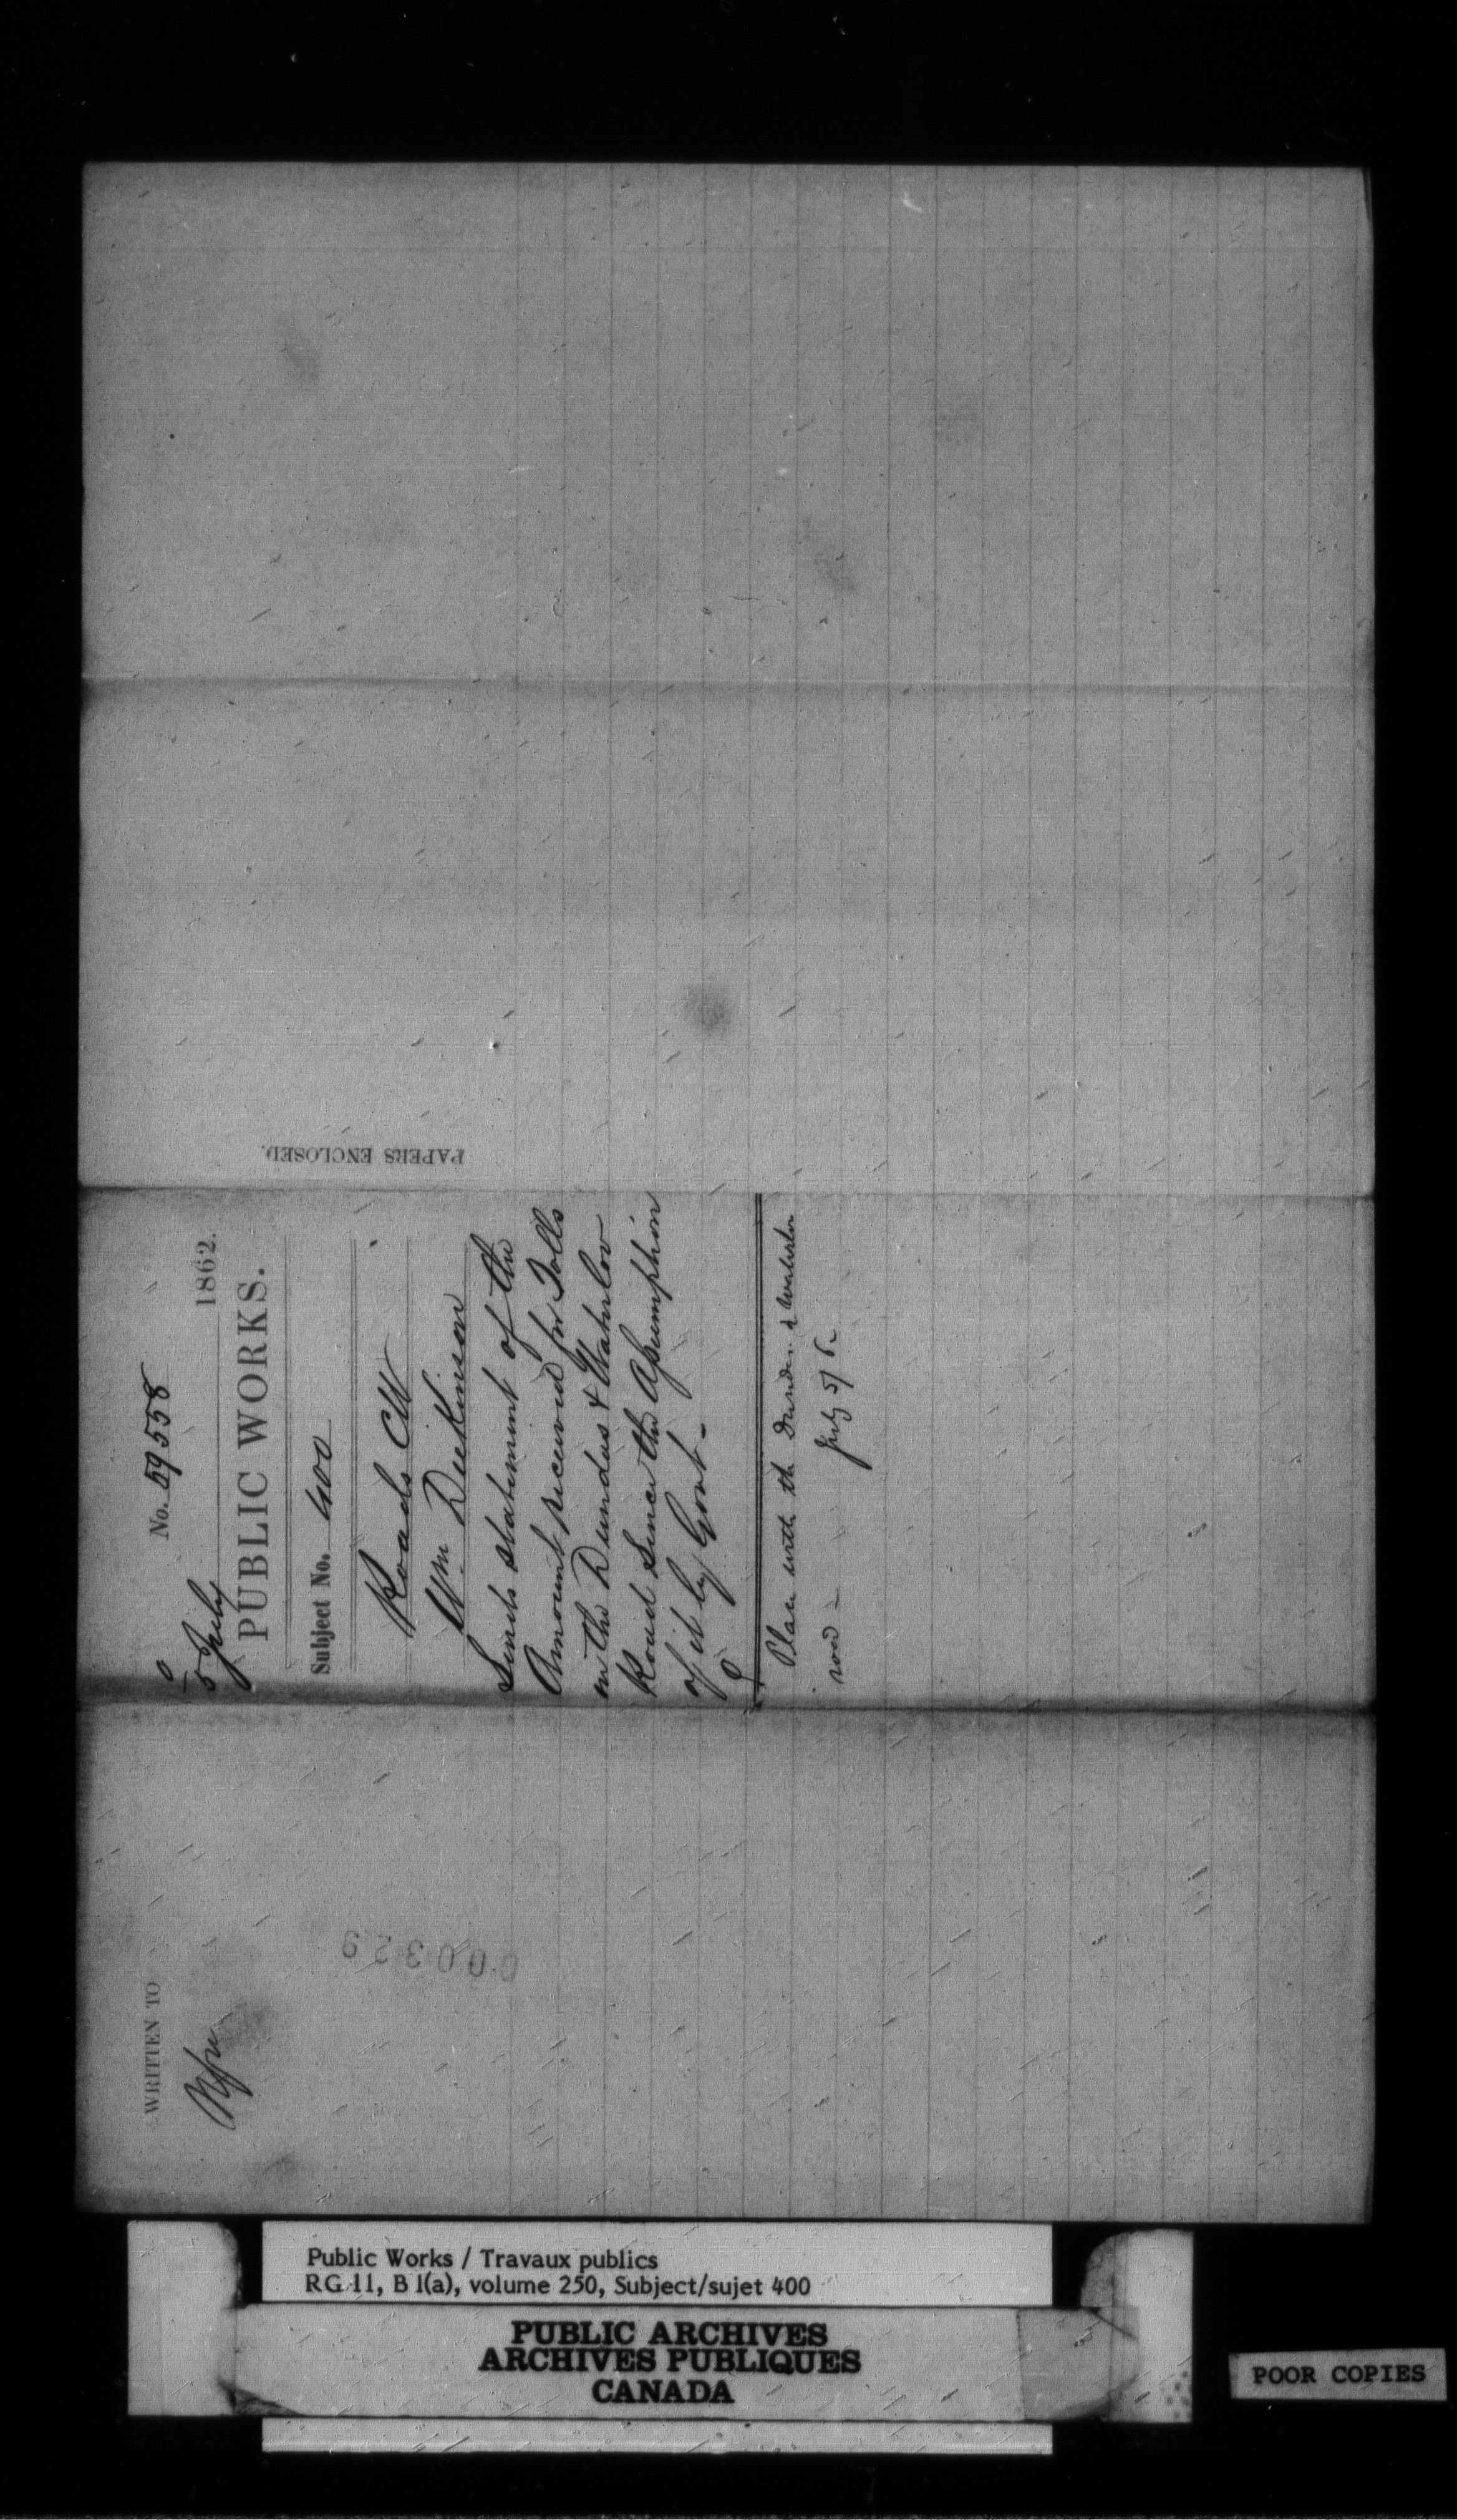 No. 59558
5 July 1862.
PUBLIC WORKS.
Subject No. 400
Roads CW
Wm Dickinson
Sends statement of the
Amount received for Tolls
on the Dundas & Waterloo
Road since the Assumption
of it by Govt -
Place with the Dundas & Waterloo
road -
July 5/62
PAPERS ENCLOSED.
WRITTEN TO
000329
Public Works / Travaux publics
RG 11, B 1(a), volume 250, Subject/sujet 400
PUBLIC ARCHIVES
ARCHIVES PUBLIQUES
CANADA
POOR COPIES